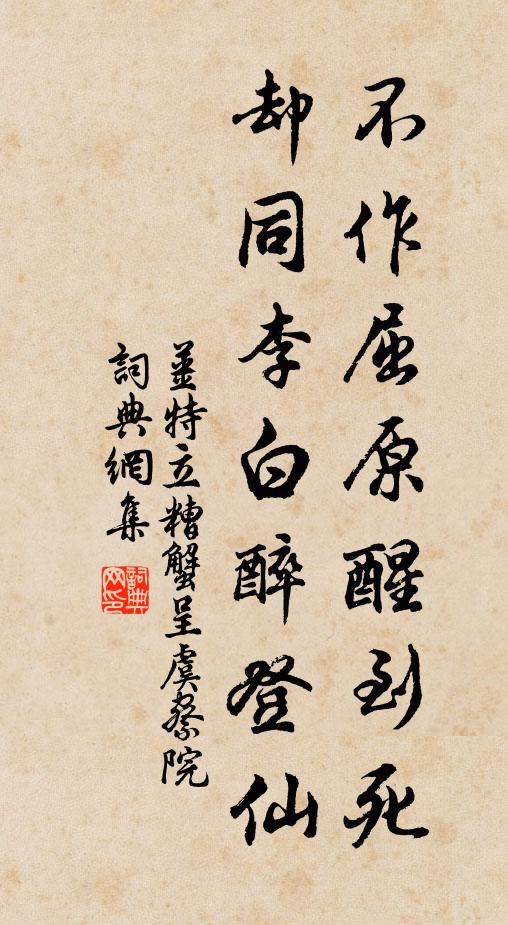 不作屈原醒到死
却同李白醉登仙
薑特立糟蟹呈虞察院
詞典網集
詞典網印